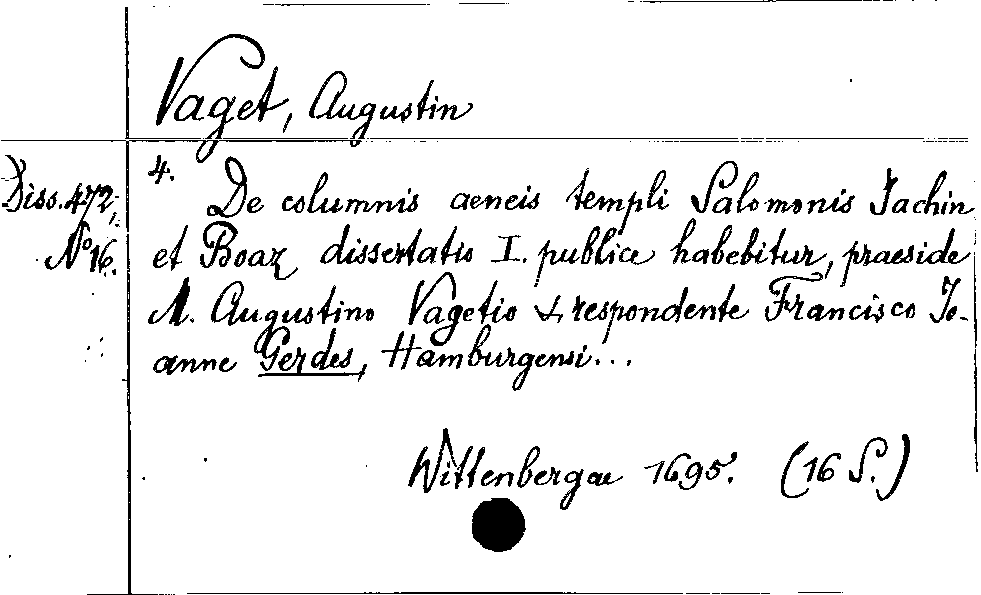 Vaget, Augustin
4.
Diss. 472,
No 16.
De columnis aeneis templi Salomonis Jachin
et Boaz dissertatio I. publice habebitur, praeside
M. Augustino Vagetio & respondente Francisco Jo-
anne Gerdes, Hamburgensi...
Wittenbergae 1695. (16 S.)